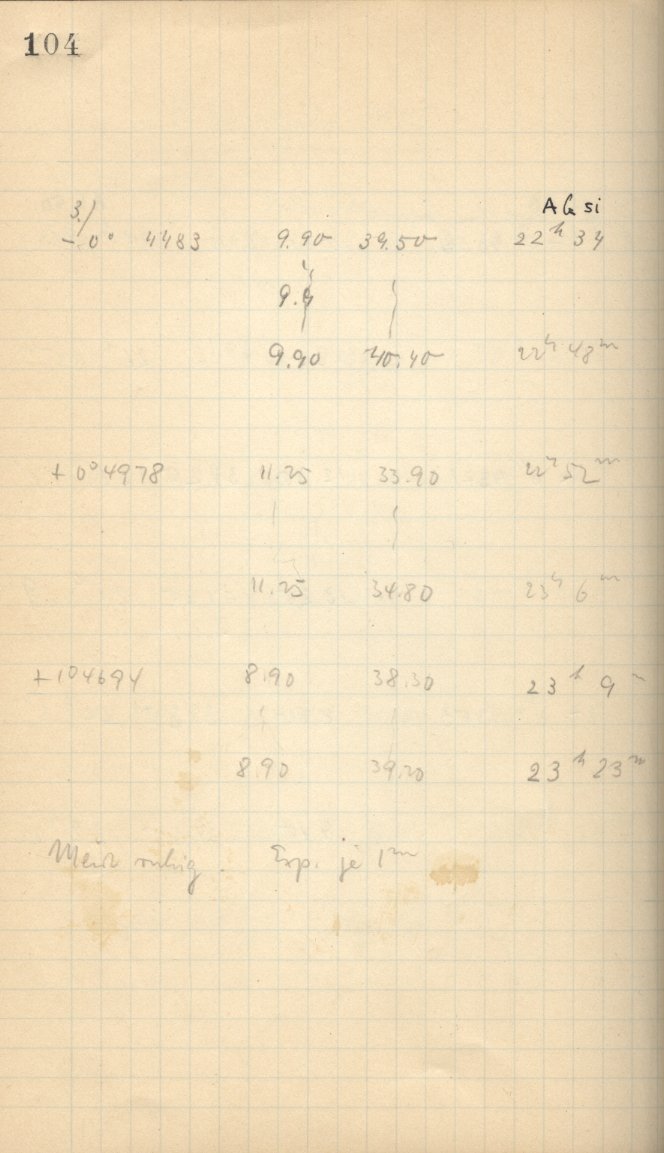 104
3.)
-0° 4483 9.90 39.50 22h 34
9.9
9.90 40.40 22h 48m
+0°4978 11.25 33.90 22h 52m
11.25 34.80 23h 6m
+1°4694 8.90 38.30 23h 9m
8.90 39.20 23h 23m
ruhig. Exp. je 1m